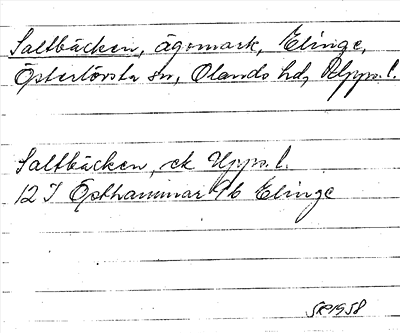 Saltbäcken, ägomark, Elinge,
Österlövsta sn, Olands hd, Upps. l.
Saltbäcken, ek Upps. l.
12 I Östhammar 9b Elinge
1958